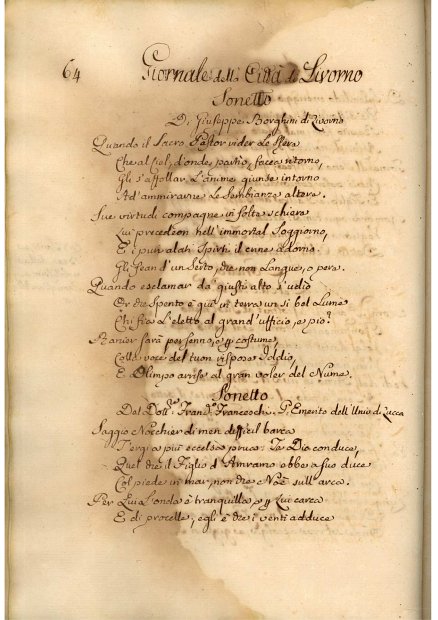 64 Giornale della Città di Livorno
Sonetto
Di Giuseppe Borghini di Livorno
Quando il Sacro Pastor vider le Sfere
Che al Ciel, d'onde partio, facea ritorno,
Gli s'affollar l'anime giuste intorno
Ad' ammirarne le Sembianze altere.
Sue virtudi compagne in folte schiere
Lui precedion nell' immortal Soggiorno,
E i puri alati Spirti il crine adorno
Gli fean d'un Serto, che non Langue, o pera.
Quando esclamar da' giusti alto s'udìo
Or che Spento è quà in terra un sì bel Lume
Chi fia l'eletto al grand' ufficio, e pio?
Ranier sarà per senno, e pj costume,
Colla voce del tuon rispose Iddio,
E Olimpo arrise al gran voler del Nume.
Sonetto
Del Dott.re Franc.o Franceschi. P. Emerito dell' Univ di Lucca
Saggio Nocchier di men difficil barca
T'ergi a più eccelsa prua: Te Dio conduce,
Quel che il Figlio d'Amramo ebbe a suo duce
Col piede in mar, non che Noè sull' arca.
Per Lui l'onda è tranquilla e per Lui carca
E di procelle, egli è che i venti adduce